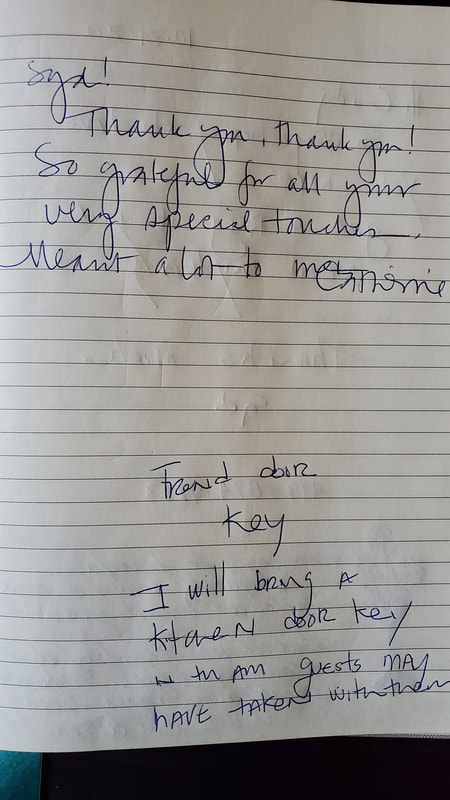 Syd!
Thank you, thank you!
So grateful for all your
very special touches.
Meant a lot to me
door
Key
I will bring a
door key
guests MAY
HAVE TAKEN with them